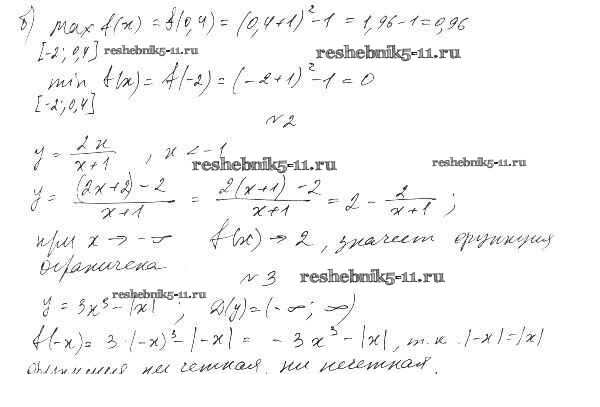 б) max f(x) = f(0,4) = (0,4+1)² -1 = 1,96 -1 = 0,96
[-2; 0,4] reshebnik5-11.ru reshebnik5-11.ru
min f(x) = f(-2) = (-2+1)² -1 = 0
[-2; 0,4]
№2
y = 2x/(x+1) , x < -1 reshebnik5-11.ru reshebnik5-11.ru
y = ((2x+2)-2)/(x+1) = (2(x+1)-2)/(x+1) = 2 - 2/(x+1) ;
при x → -∞ f(x) → 2, значит функция
ограничена
№3 reshebnik5-11.ru
reshebnik5-11.ru
y = 3x³ - |x| ; D(y) = (-∞; ∞)
f(-x) = 3·(-x)³ - |-x| = -3x³ - |x|, т.к. |-x| = |x|
функция ни четная, ни нечетная.